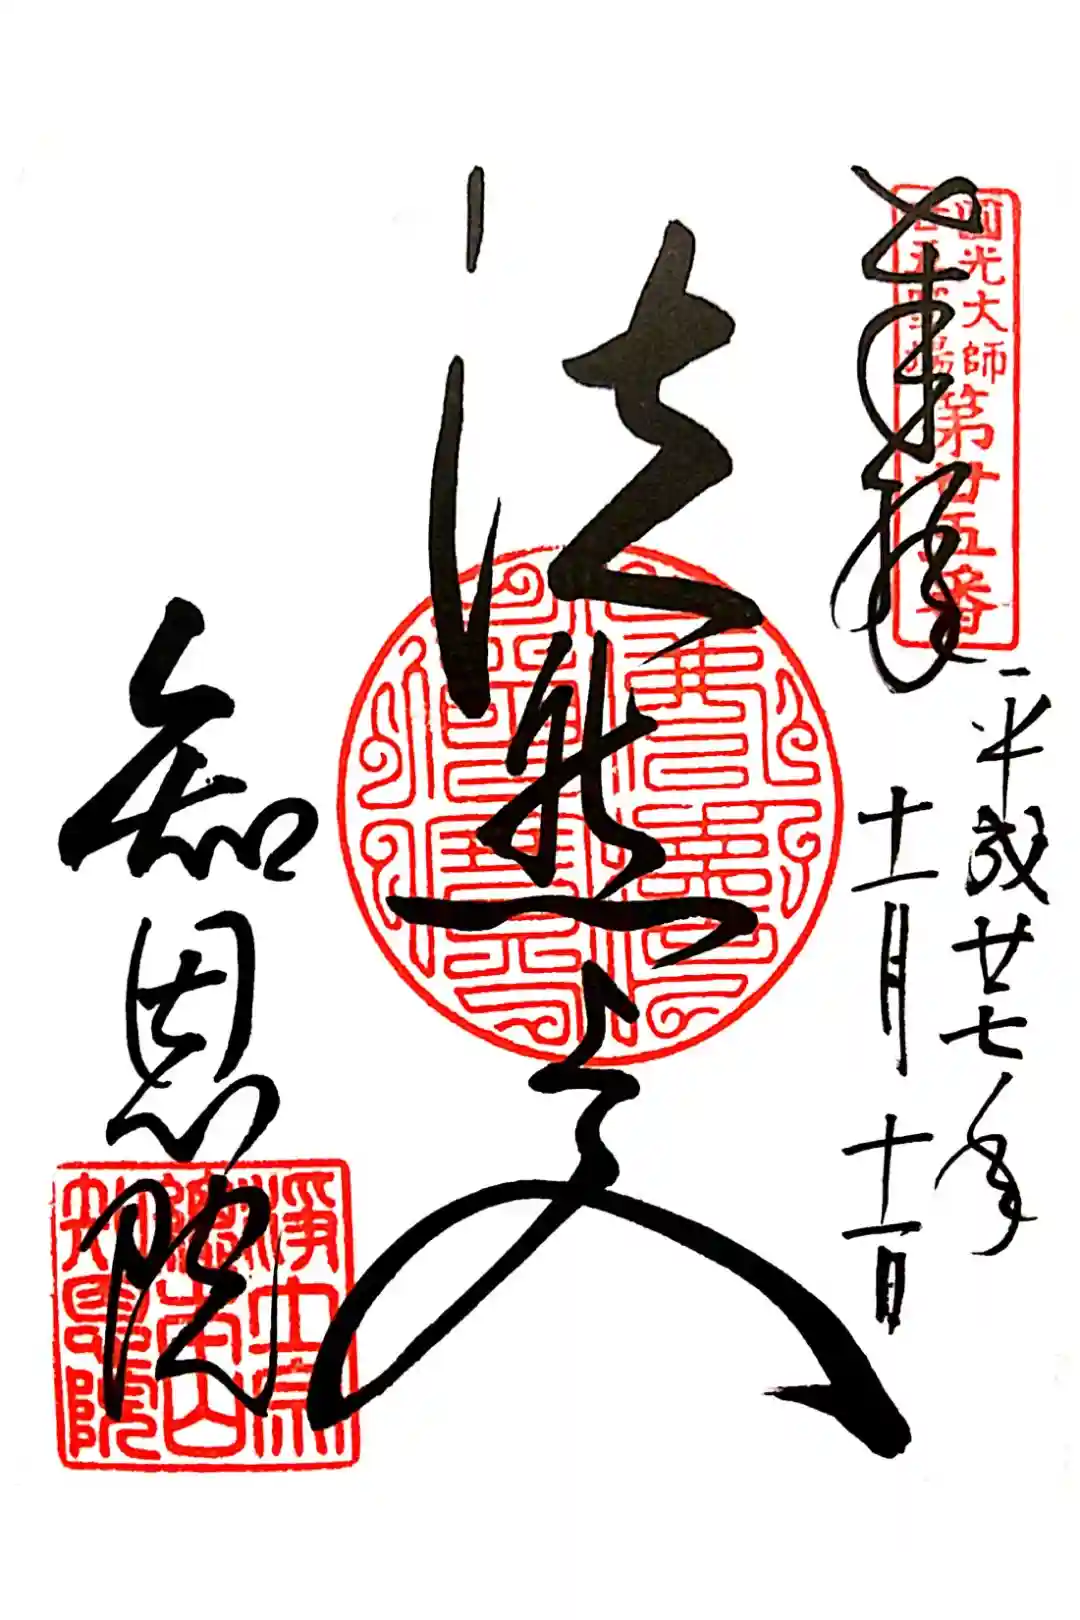 奉拝
圓光大師
第廿五番
平成廿七年
十一月
十一日
法然上人
知恩院
淨土宗
總本山
知恩院